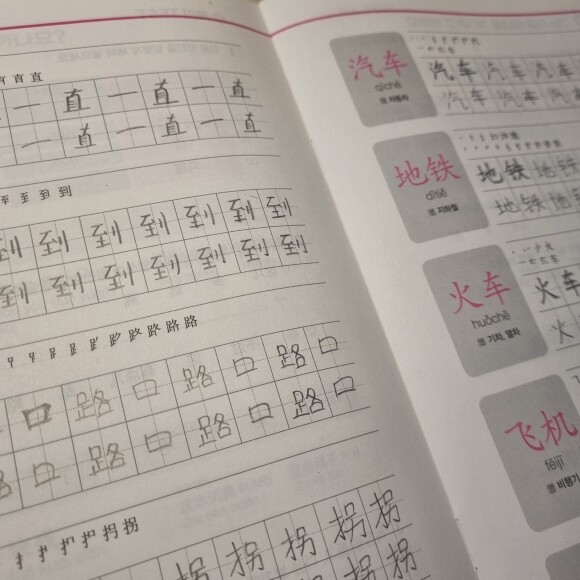 直
一 直 一 直 一 直
一 直 一 直 一 直
至 至 到 到
到 到 到 到 到 到 到
到 到 到 到 到 到 到
路 路 路 路
口 路 口 路 口 路 口
口 路 口 路 口 路 口
拐 拐
拐 拐 拐 拐 拐
拐
汽车
qìchē
명 자동차
汽车 汽车 汽车
汽车 汽车 汽车
地铁
dìtiě
명 지하철
地铁 地铁
地铁 地铁
火车
huǒchē
명 기차, 열차
火车
火
飞机
fēijī
명 비행기